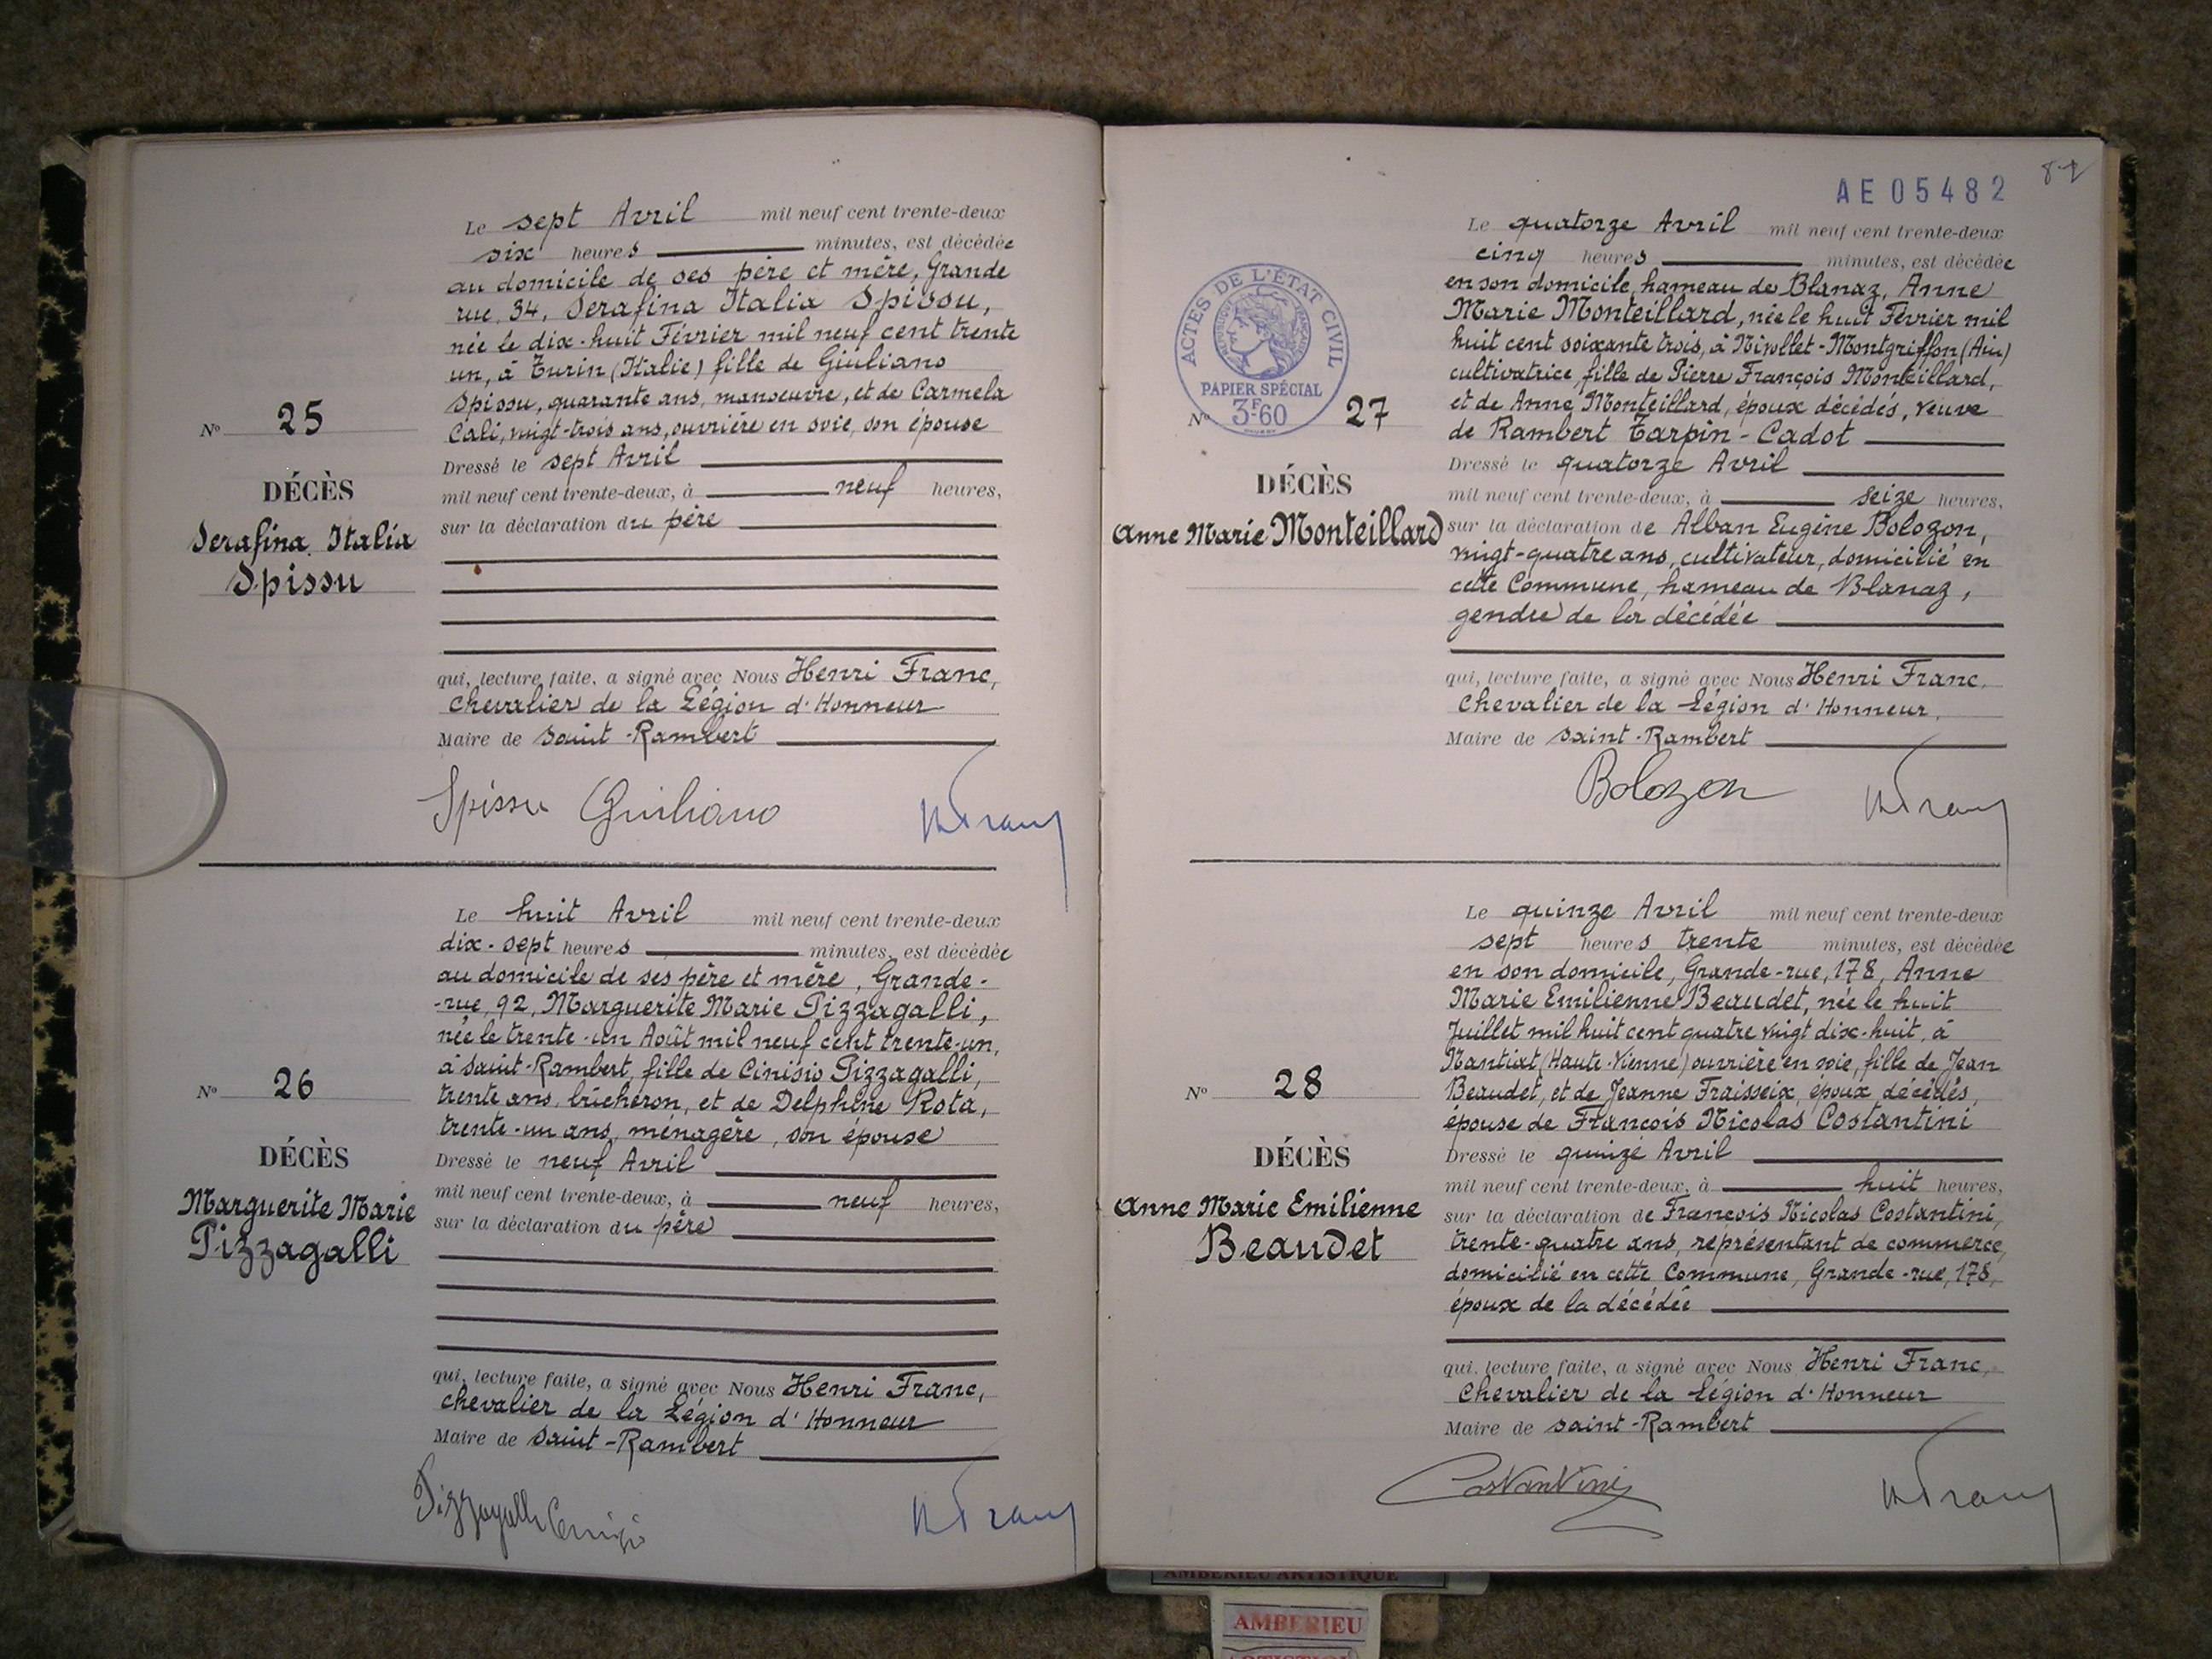 Le sept Avril mil neuf cent trente-deux
six heures minutes, est décédée
au domicile de ses père et mère, Grande
rue, 34, Serafina Italia Spissu,
née le dix-huit Février mil neuf cent trente
un, à Turin (Italie) fille de Giuliano
Spissu, quarante ans, manoeuvre, et de Carmela
Cali, vingt-trois ans, ouvrière en soie, son épouse
Dressé le sept Avril
mil neuf cent trente-deux, à neuf heures,
sur la déclaration du père
qui, lecture faite, a signé avec Nous Henri Franc,
Chevalier de la Légion d'Honneur
Maire de Saint-Rambert
Nº 25
DÉCÈS
Serafina Italia
Spissu
Spissu Giuliano
H Franc
Le huit Avril mil neuf cent trente-deux
dix-sept heures minutes, est décédée
au domicile de ses père et mère, Grande-
-rue, 92, Marguerite Marie Pizzagalli,
née le trente-un Août mil neuf cent trente-un,
à Saint-Rambert, fille de Cinisio Pizzagalli,
trente ans, bûcheron, et de Delphine Rota,
trente-un ans, ménagère, son épouse
Dressé le neuf Avril
mil neuf cent trente-deux, à neuf heures,
sur la déclaration du père
qui, lecture faite, a signé avec Nous Henri Franc,
Chevalier de la Légion d'Honneur
Maire de Saint-Rambert
Nº 26
DÉCÈS
Marguerite Marie
Pizzagalli
Pizzagalli
H Franc
AE 05482
87
Le quatorze Avril mil neuf cent trente-deux
cinq heures minutes, est décédée
en son domicile, hameau de Blanaz, Anne
Marie Monteillard, née le huit Février mil
huit cent soixante trois, à Nivollet-Montgriffon (Ain)
cultivatrice, fille de Pierre François Monteillard,
et de Anne Monteillard, époux décédés, veuve
de Rambert Tarpin-Cadot
Dressé le quatorze Avril
mil neuf cent trente-deux, à seize heures,
sur la déclaration de Alban Eugène Bolozon,
vingt-quatre ans, cultivateur, domicilié en
cette Commune, hameau de Blanaz,
gendre de la décédée
qui, lecture faite, a signé avec Nous Henri Franc,
Chevalier de la Légion d'Honneur,
Maire de Saint-Rambert
ACTES DE L'ÉTAT CIVIL
RÉPUBLIQUE FRANÇAISE
PAPIER SPÉCIAL
3F60
Nº 27
DÉCÈS
Anne Marie Monteillard
Bolozon
H Franc
Le quinze Avril mil neuf cent trente-deux
sept heures trente minutes, est décédée
en son domicile, Grande-rue, 178, Anne
Marie Emilienne Beaudet, née le huit
Juillet mil huit cent quatre vingt dix-huit, à
Nantiat (Haute-Vienne) ouvrière en soie, fille de Jean
Beaudet, et de Jeanne Fraisseix, époux décédés,
épouse de François Nicolas Costantini
Dressé le quinze Avril
mil neuf cent trente-deux, à huit heures,
sur la déclaration de François Nicolas Costantini,
trente-quatre ans, représentant de commerce,
domicilié en cette Commune, Grande-rue, 178,
époux de la décédée
qui, lecture faite, a signé avec Nous Henri Franc,
Chevalier de la Légion d'Honneur
Maire de Saint-Rambert
Nº 28
DÉCÈS
Anne Marie Emilienne
Beaudet
Costantini
H Franc
AMBERIEU ARTISTIQUE
AMBERIEU
ARTISTIQU